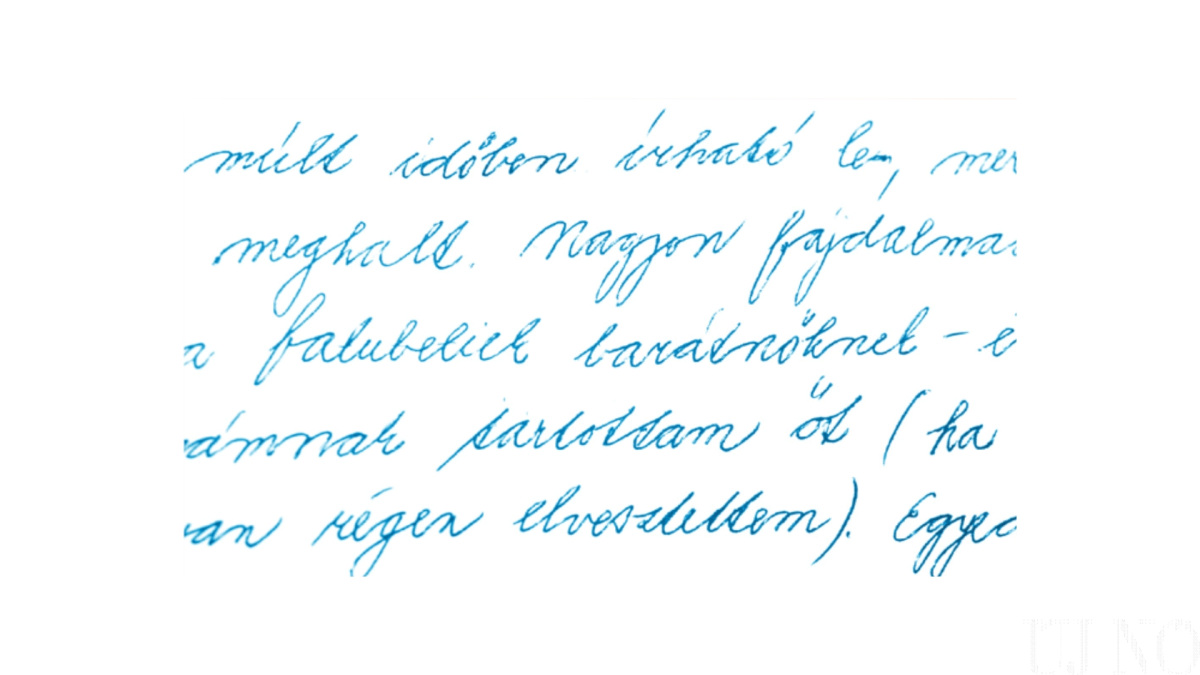 múlt időben írható le, mer
meghalt. Nagyon fájdalmas
a falubeliek barátnőknek - é
ámnak tartottam őt (ha
van régen elvesztettem). Egyed
ÚJ NŐ